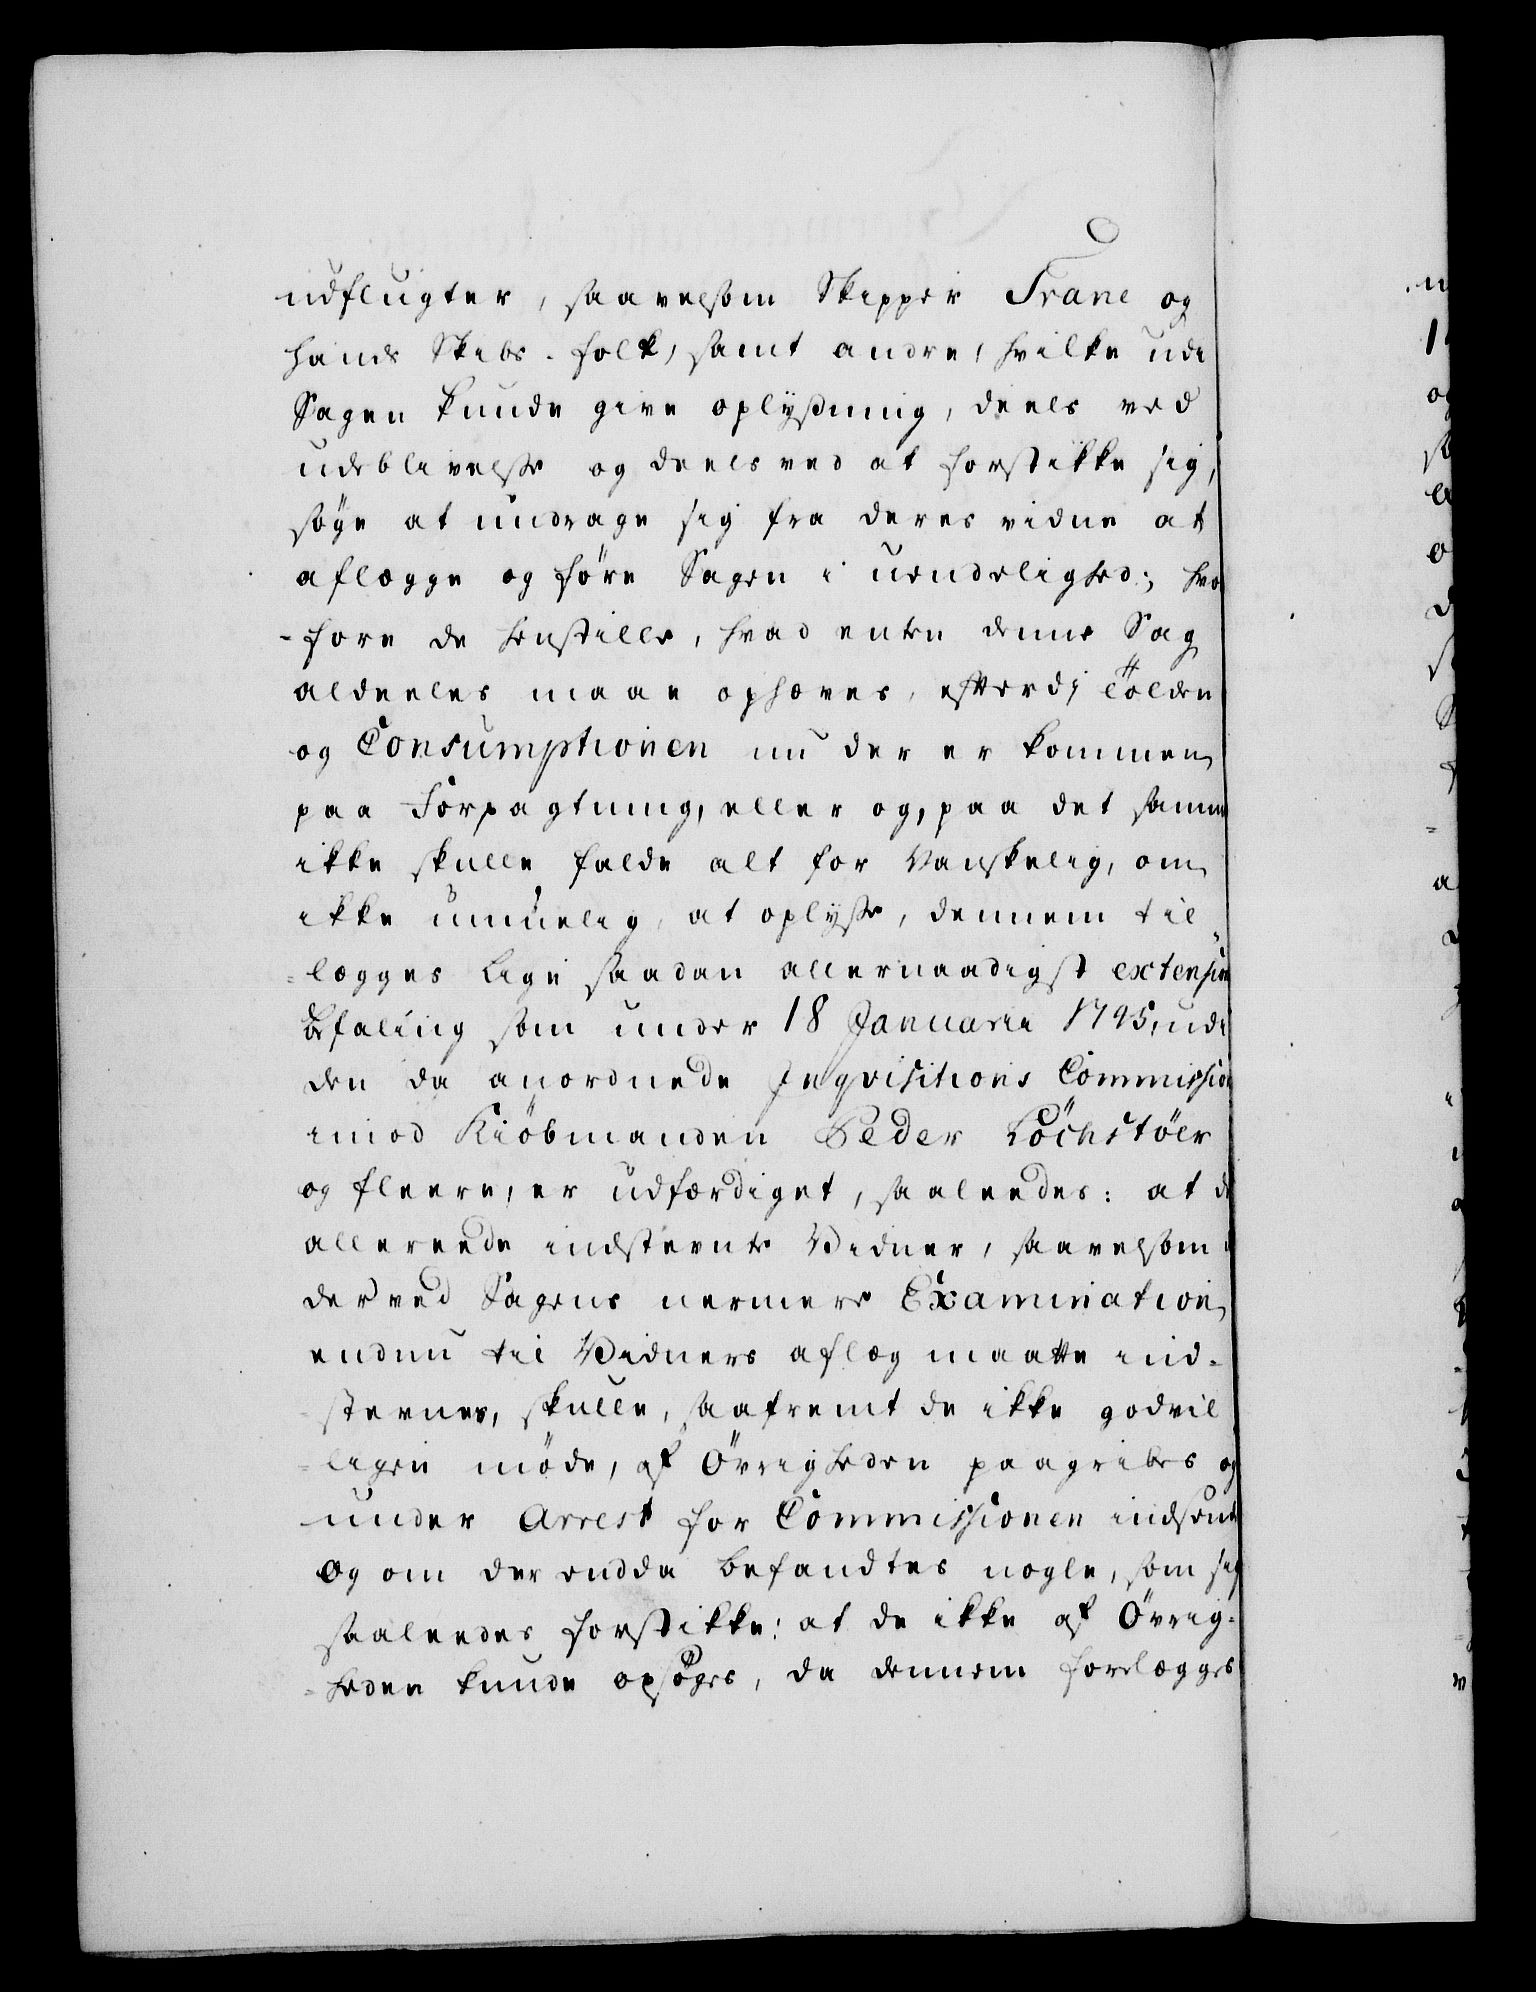 udflugter, saavelsom Skipper Trane og
hands Skibs-folk, samt andre, hvilke udi
Sagen kunde give oplysning, deels ved
udeblivelse og deels ved at forstikke sig,
söge at undrage sig fra deres vidne at
aflægge og före Sagen i uendelighed; hvor
-fore de henstille, hvad enten denne Sag
aldeeles maae ophæves, efterdi Tolden
og Consumptionen nu der er kommen
paa Forpagtning, eller og, paa det samme
ikke skulle falde alt for Vanskelig, om
ikke umuelig, at oplyse, dennem til
-lægges lige saadan allernaadigst extension
Befaling som under 18 Januarii 1745, udi
den da anordnede Inqvisitions Commission
imod Kiöbmanden Peder Löchstöer
og fleere, er udfærdiget, saaleedes: at de
allereede indstevnte Vidner, saavelsom
der ved Sagens nermere Examination
endnu til Vidners aflæg maatte ind-
-stevnes, skulle, saafremt de ikke godvil
-ligen möde, af Övrigheden paagribes og
under Arrest for Commissionen indsendt
og om der endda befandtes nogle, som sig
saaleedes forstikke: at de ikke af Övrig-
-heden kunde opsöges, da dennem forelægges